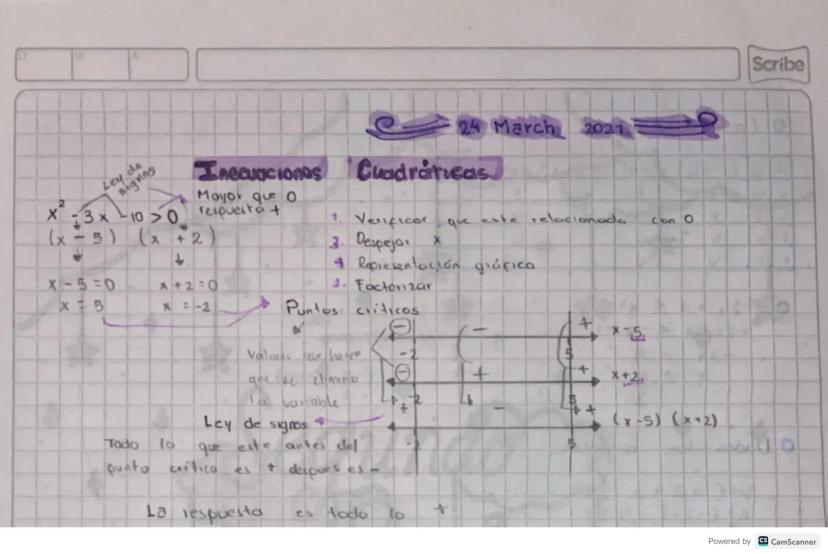 Scribe
24 March 2021
Inecuaciones Cuadráticas
Ley de signos
Mayor que 0
respuesta +
x² - 3x - 10 > 0
(x - 5) (x + 2)
x - 5 = 0 x + 2 = 0
x = 5 x = -2
1. Verificar que este relacionada con 0
3. Despejar x
4 Representación gráfica
2. Factorizar
Puntos críticos
Valores que hacen
que se elimine
la variable
- - + x-5
-2 5
- + + x+2
-2 5
+ - + (x-5) (x+2)
-2 5
Ley de signos
Todo lo que este antes del
punto crítico es + despues es -
La respuesta es todo lo +
Powered by CS CamScanner